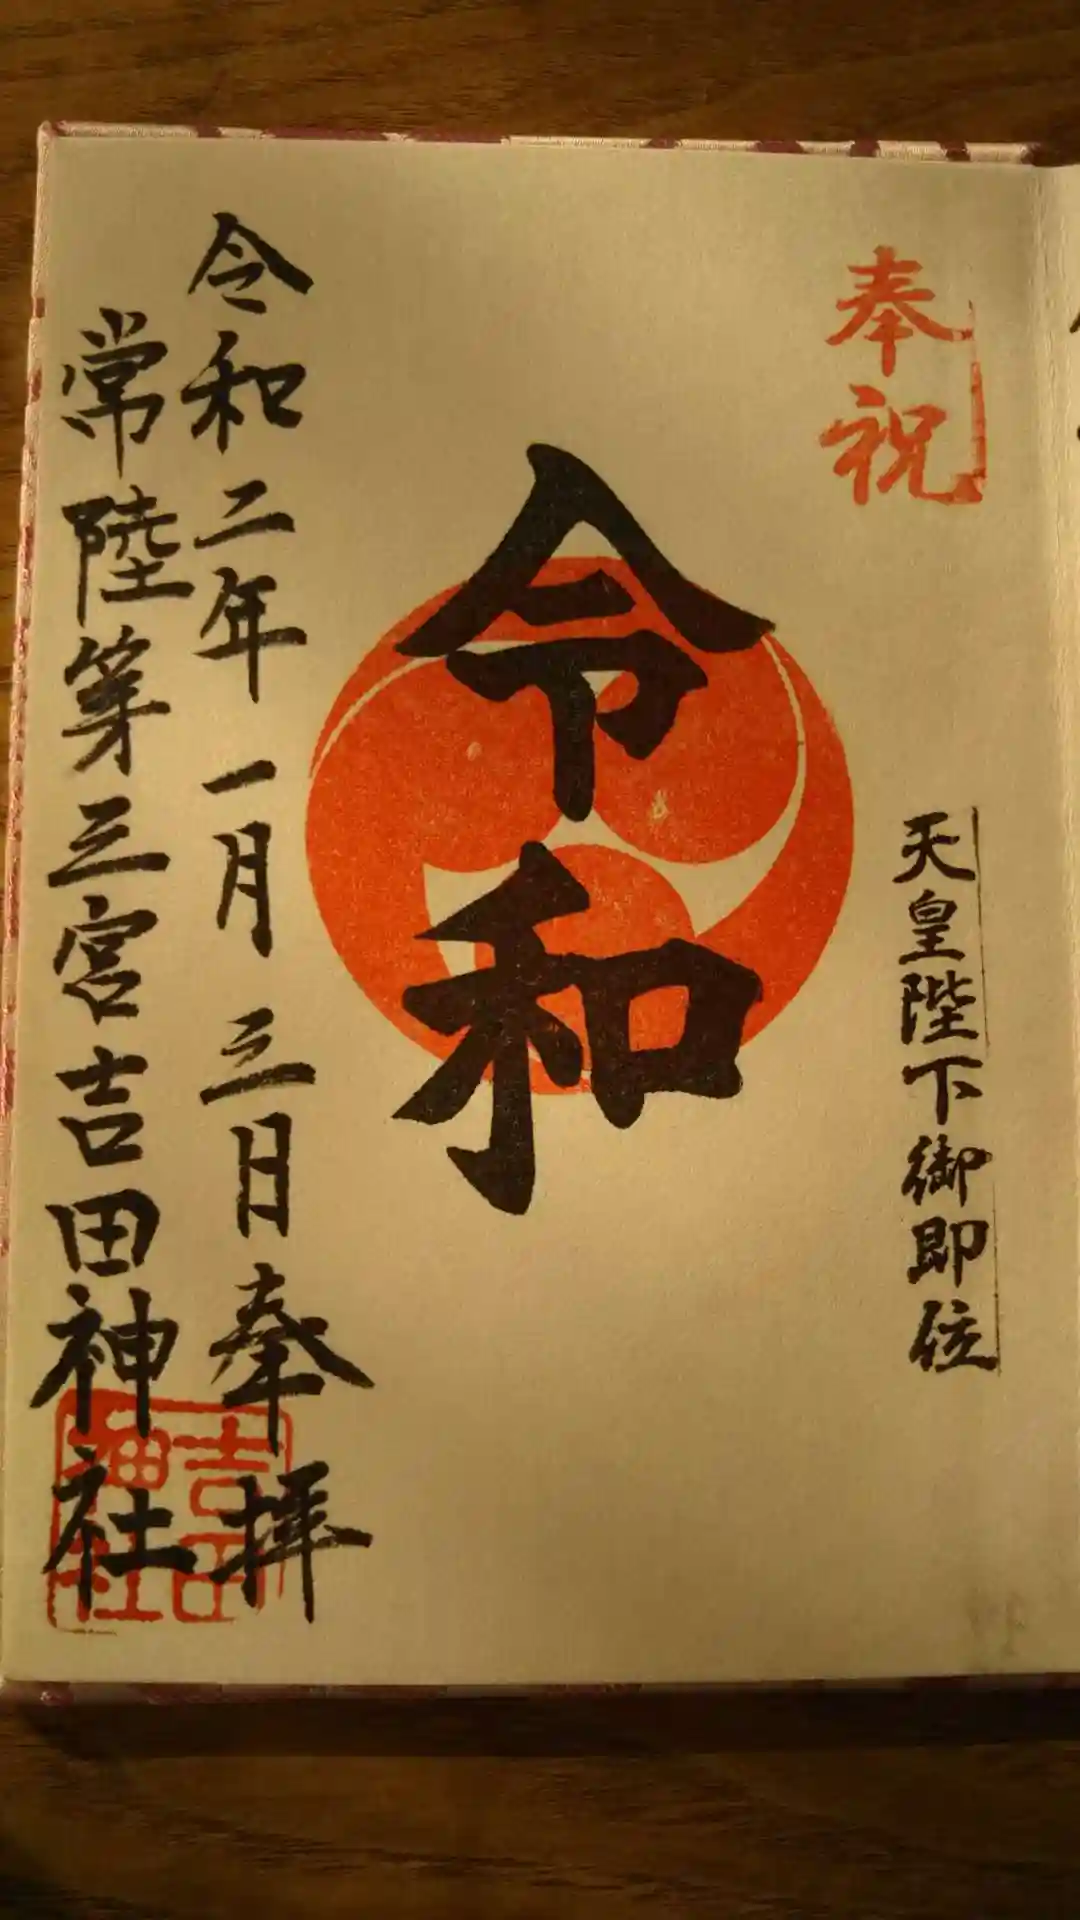 奉祝
天皇陛下御即位
令和
令和二年一月三日奉拝
常陸第三宮吉田神社
吉田
神社